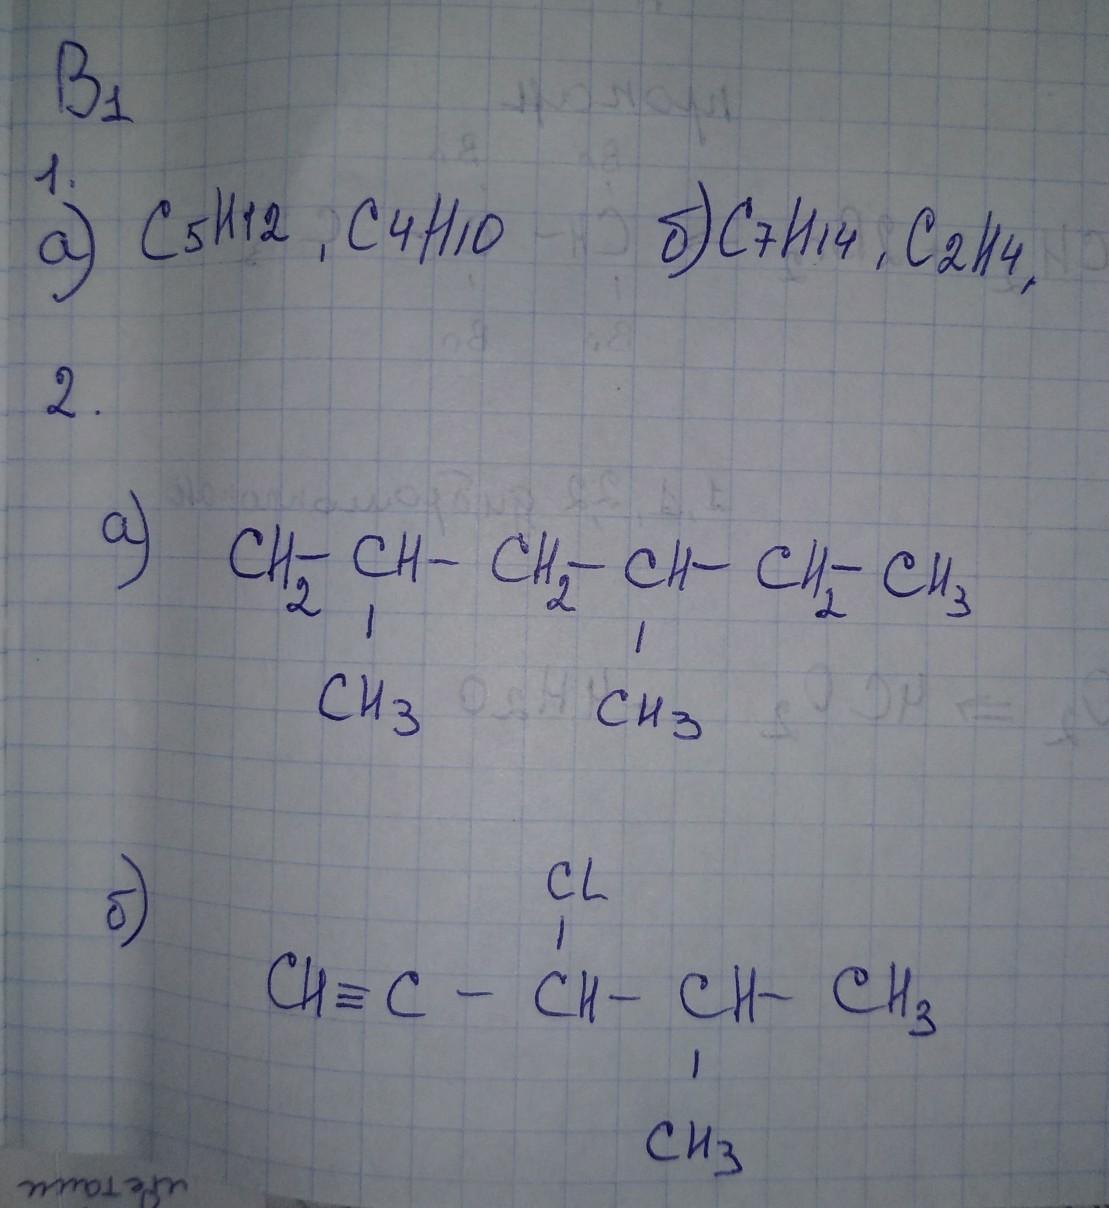 В1
1.
а) C5H12, C4H10 б) C7H14, C2H4,
2.
а) CH2 – CH – CH2 – CH – CH2 – CH3
CH3 CH3
CL
б) CH ≡ C – CH – CH – CH3
CH3